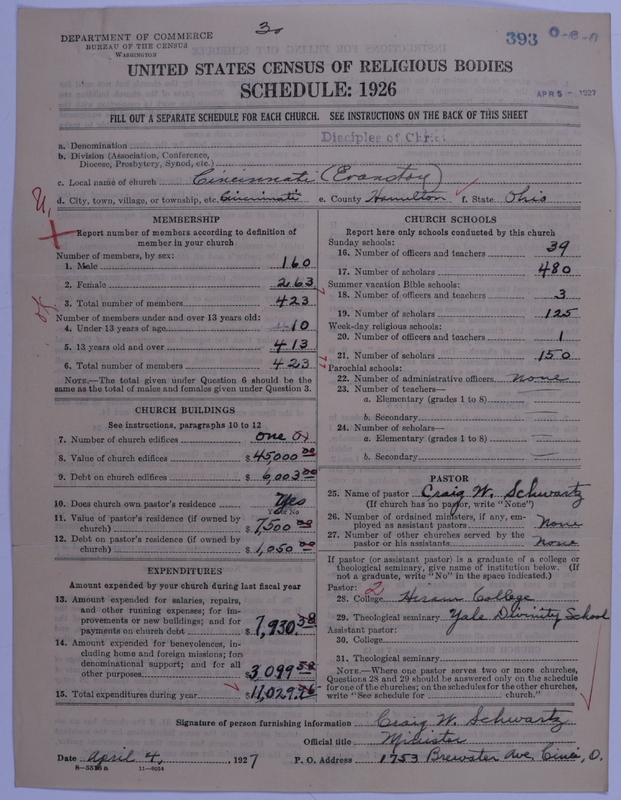 DEPARTMENT OF COMMERCE
BUREAU OF THE CENSUS
WASHINGTON
393
APR 5 - 1927
UNITED STATES CENSUS OF RELIGIOUS BODIES
SCHEDULE: 1926
FILL OUT A SEPARATE SCHEDULE FOR EACH CHURCH. SEE INSTRUCTIONS ON THE BACK OF THIS SHEET
a. Denomination Disciples of Christ
b. Division (Association, Conference,
Diocese, Presbytery, Synod, etc.)
c. Local name of church Cincinnati (Evanston)
d. City, town, village, or township, etc. Cincinnati e. County Hamilton f. State Ohio
MEMBERSHIP
Report number of members according to definition of
member in your church
Number of members, by sex:
1. Male 160
2. Female 263
3. Total number of members 423
Number of members under and over 13 years old:
4. Under 13 years of age 10
5. 13 years old and over 413
6. Total number of members 423
NOTE.—The total given under Question 6 should be the
same as the total of males and females given under Question 3.
CHURCH BUILDINGS
See instructions, paragraphs 10 to 12
7. Number of church edifices one
8. Value of church edifices $45000 00
9. Debt on church edifices $6,003 00
10. Does church own pastor's residence Yes
Yes or No
11. Value of pastor's residence (if owned by
church) $7,500 00
12. Debt on pastor's residence (if owned by
church) $1,050 00
EXPENDITURES
Amount expended by your church during last fiscal year
13. Amount expended for salaries, repairs,
and other running expenses; for im-
provements or new buildings; and for
payments on church debt $7,930.58
14. Amount expended for benevolences, in-
cluding home and foreign missions; for
denominational support; and for all
other purposes $3099 58
15. Total expenditures during year $11,029.16
CHURCH SCHOOLS
Report here only schools conducted by this church
Sunday schools:
16. Number of officers and teachers 39
17. Number of scholars 480
Summer vacation Bible schools:
18. Number of officers and teachers 3
19. Number of scholars 125
Week-day religious schools:
20. Number of officers and teachers 1
21. Number of scholars 150
Parochial schools:
22. Number of administrative officers none
23. Number of teachers—
a. Elementary (grades 1 to 8)
b. Secondary
24. Number of scholars—
a. Elementary (grades 1 to 8)
b. Secondary
PASTOR
25. Name of pastor Craig W. Schwartz
(If church has no pastor, write "None")
26. Number of ordained ministers, if any, em-
ployed as assistant pastors None
27. Number of other churches served by the
pastor or his assistants None
If pastor (or assistant pastor) is a graduate of a college or
theological seminary, give name of institution below. (If
not a graduate, write "No" in the space indicated.)
Pastor: 2
28. College Hiram College
29. Theological seminary Yale Divinity School
Assistant pastor:
30. College
31. Theological seminary
NOTE.—Where one pastor serves two or more churches,
Questions 28 and 29 should be answered only on the schedule
for one of the churches; on the schedules for the other churches,
write "See schedule for church."
Signature of person furnishing information Craig W. Schwartz
Official title Minister
Date April 4, 1927 P. O. Address 1753 Brewster Ave, Cinci, O.
11-9054